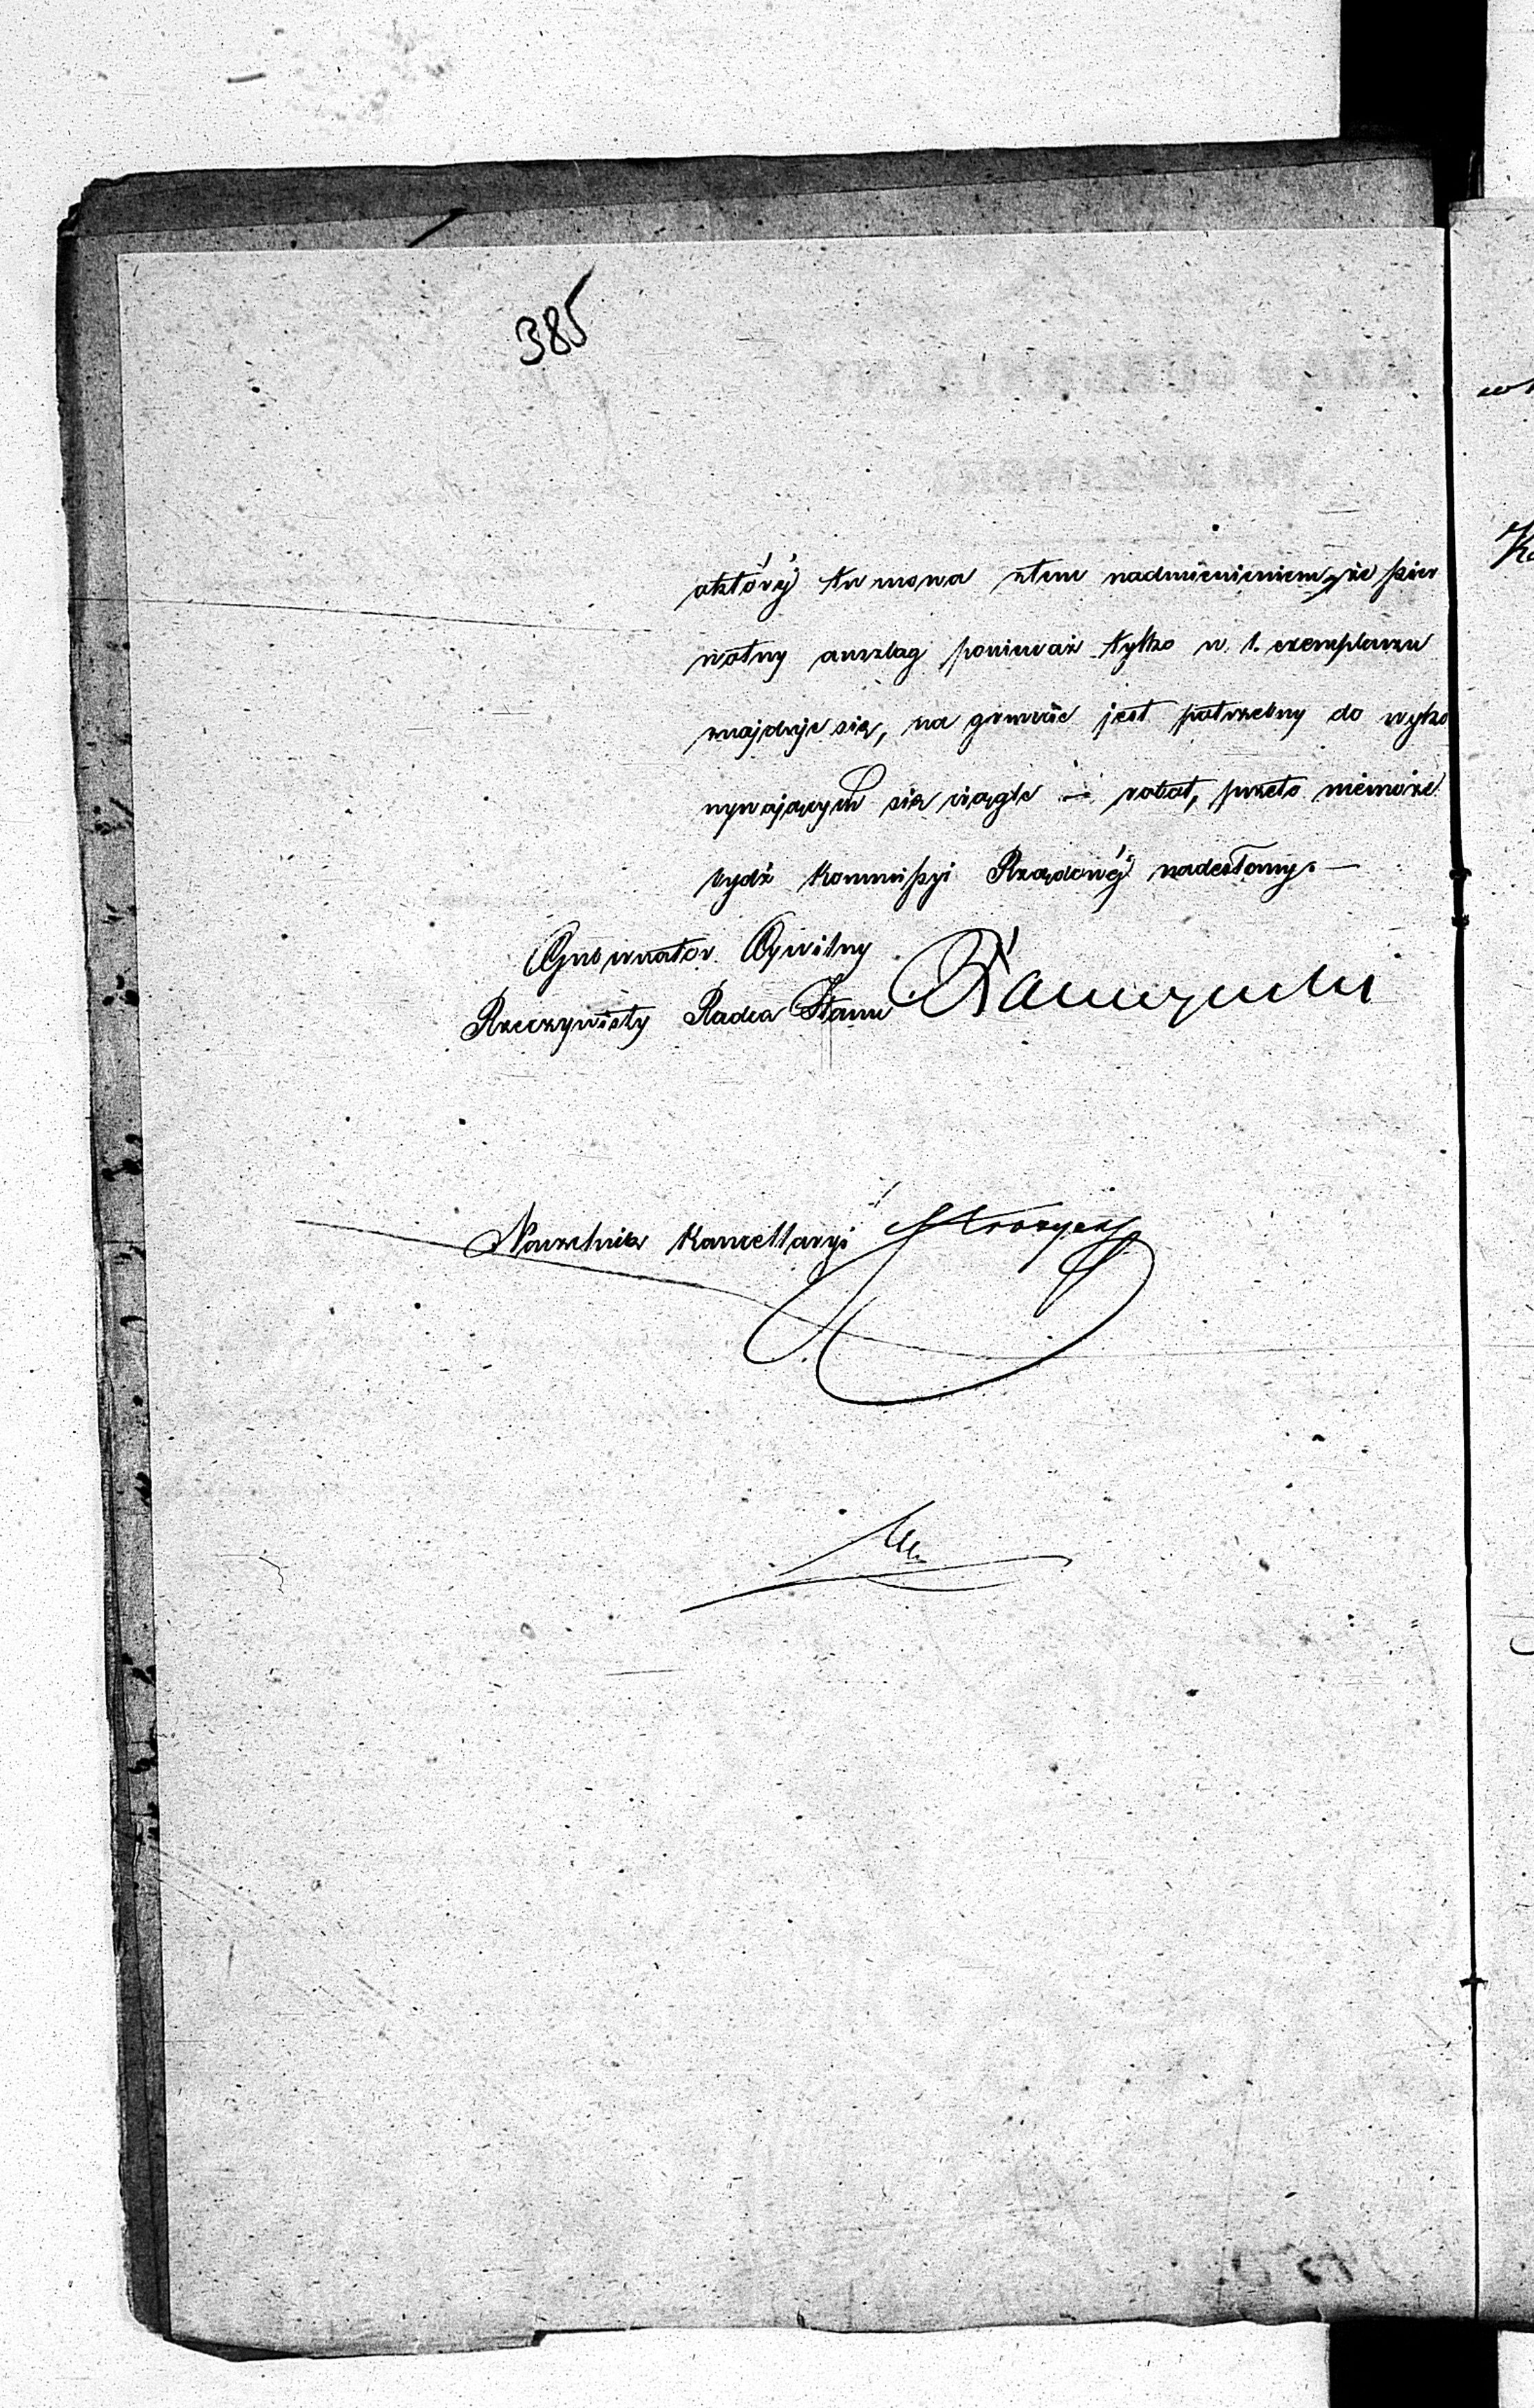 385
októréj tu mowa z tem nadmienieniem, że pier
wotny anszlag ponieważ tylko w 1. exemplarzu
znajduje się, na gruncie jest potrzebny do wyko
nywających się ciągle robót, przeto niemoże
bydź Kommissyi Rządowéj nadesłany. —
Gubernator Cywilny
Rzeczywisty Radca Stanu
Naczelnik Kancellaryi